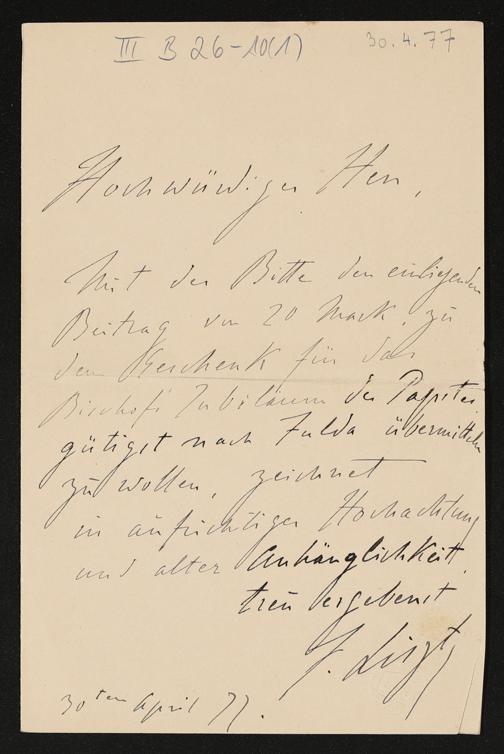 III B 26-10(1)
30.4.77
Hochwürdiger Herr,
Mit der Bitte den einliegenden
Beitrag von 20 Mark, zu
dem Geschenk für das
Bischofs Jubiläum des Papstes
gütigst nach Fulda übermitteln
zu wollen, zeichnet
in aufrichtiger Hochachtung
und alter Anhänglichkeit,
treu ergebenst
F. Liszt
30ten April 77.